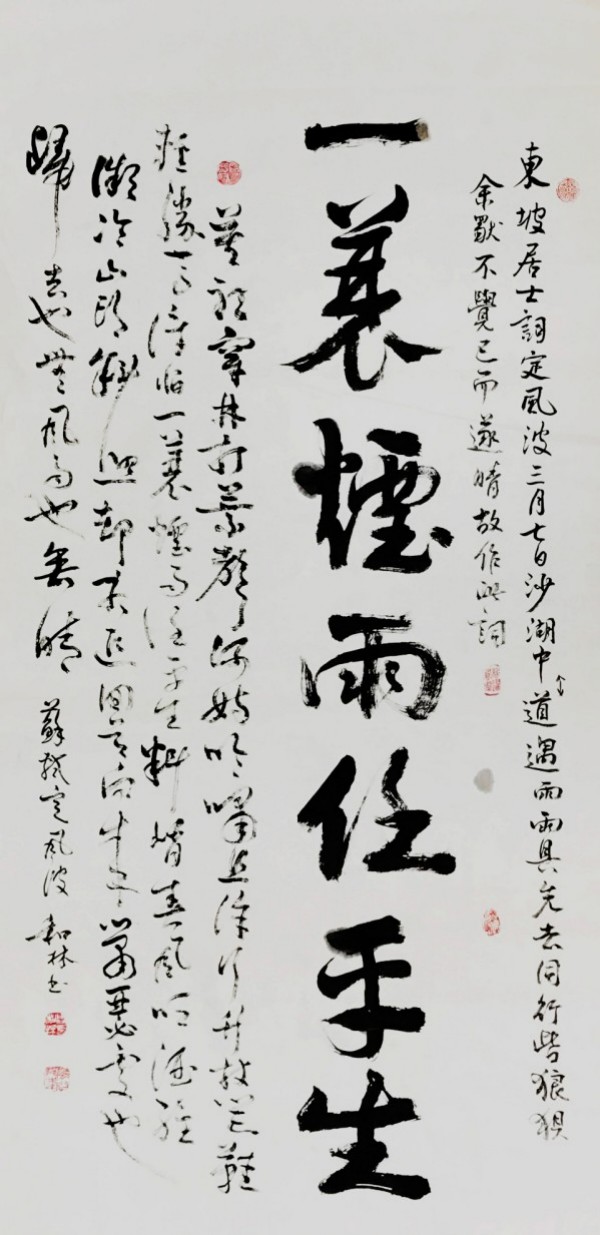 東坡居士詞定風波三月七日沙湖中道遇雨雨具先去同行皆狼狽
余不覺已而遂晴故作此詞
一蓑煙雨任平生
莫聽穿林打葉聲何妨吟嘯且徐行竹杖芒鞋
輕勝馬誰怕一蓑煙雨任平生料峭春風吹酒醒
微冷山頭斜照却相迎回首向來蕭瑟處也
歸去也無風雨也無晴 蘇軾定風波 林书